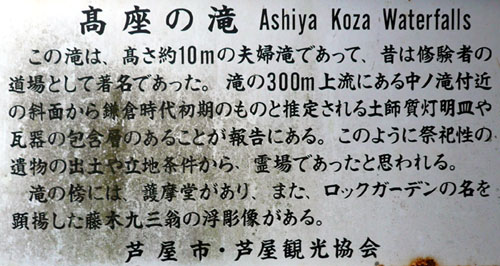 髙座の滝 Ashiya Koza Waterfalls
この滝は、高さ約10mの夫婦滝であって、昔は修験者の
道場として著名であった。滝の300m上流にある中ノ滝付近
の斜面から鎌倉時代初期のものと推定される土師質灯明皿や
瓦器の包含層のあることが報告にある。このように祭祀性の
遺物の出土や立地条件から、霊場であったと思われる。
滝の傍には、護摩堂があり、また、ロックガーデンの名を
顕揚した藤木九三翁の浮彫像がある。
芦屋市・芦屋観光協会